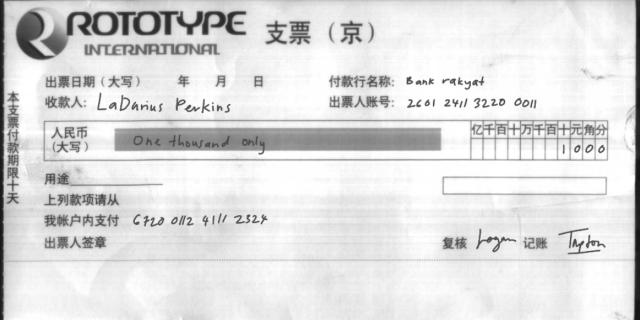 ROTOTYPE
INTERNATIONAL
支票（京）
出票日期（大写） 年 月 日
付款行名称： Bank rakyat
收款人： LaDarius Perkins
出票人账号： 2601 2411 3220 0011
本支票付款期限十天
人民币
（大写）
One thousand only
亿千百十万千百十元角分
1000
用途
上列款项请从
我帐户内支付 6720 0112 4111 2324
出票人签章
复核 Logan 记账 Tayton